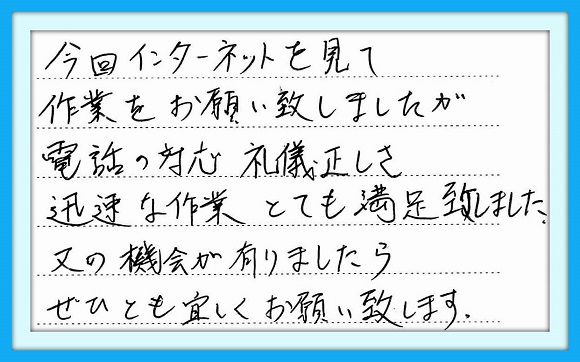 今回インターネットを見て
作業をお願い致しましたが
電話の対応 礼儀正しさ
迅速な作業 とても満足致しました。
又の機会が有りましたら
ぜひとも宜しくお願い致します.